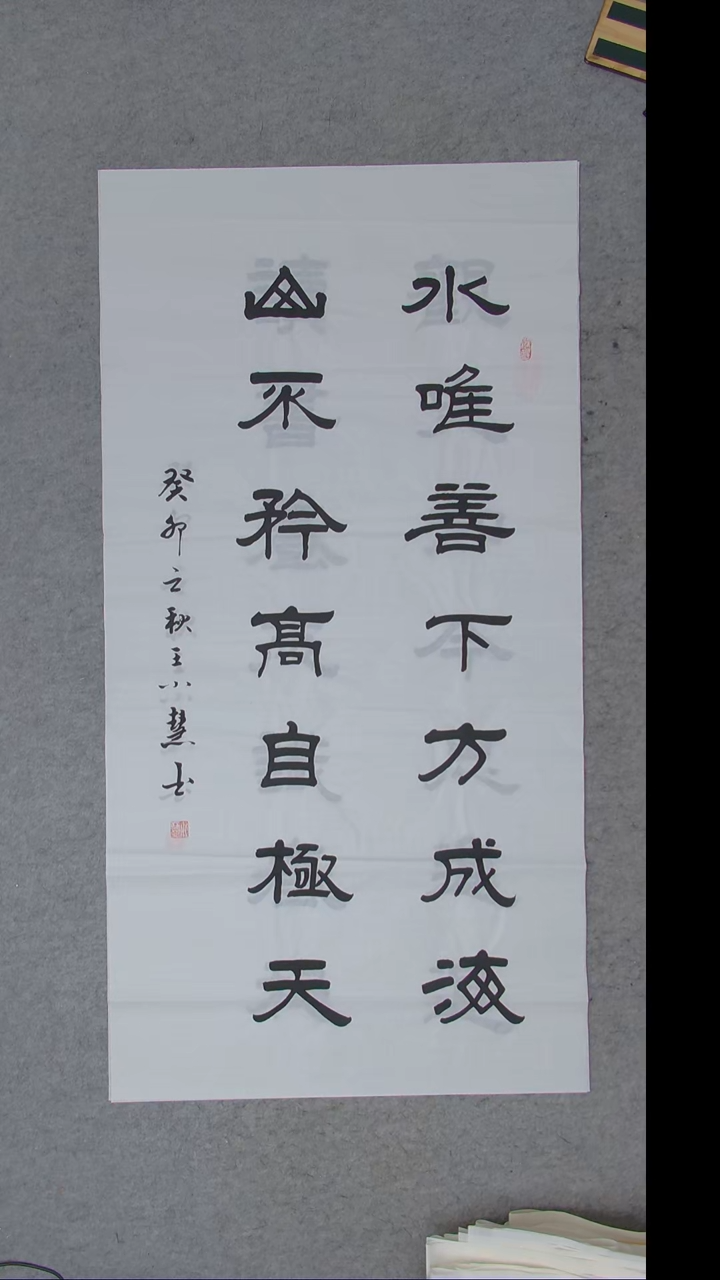 水唯善下方成海
山不矜高自極天
癸卯之秋王小慧书